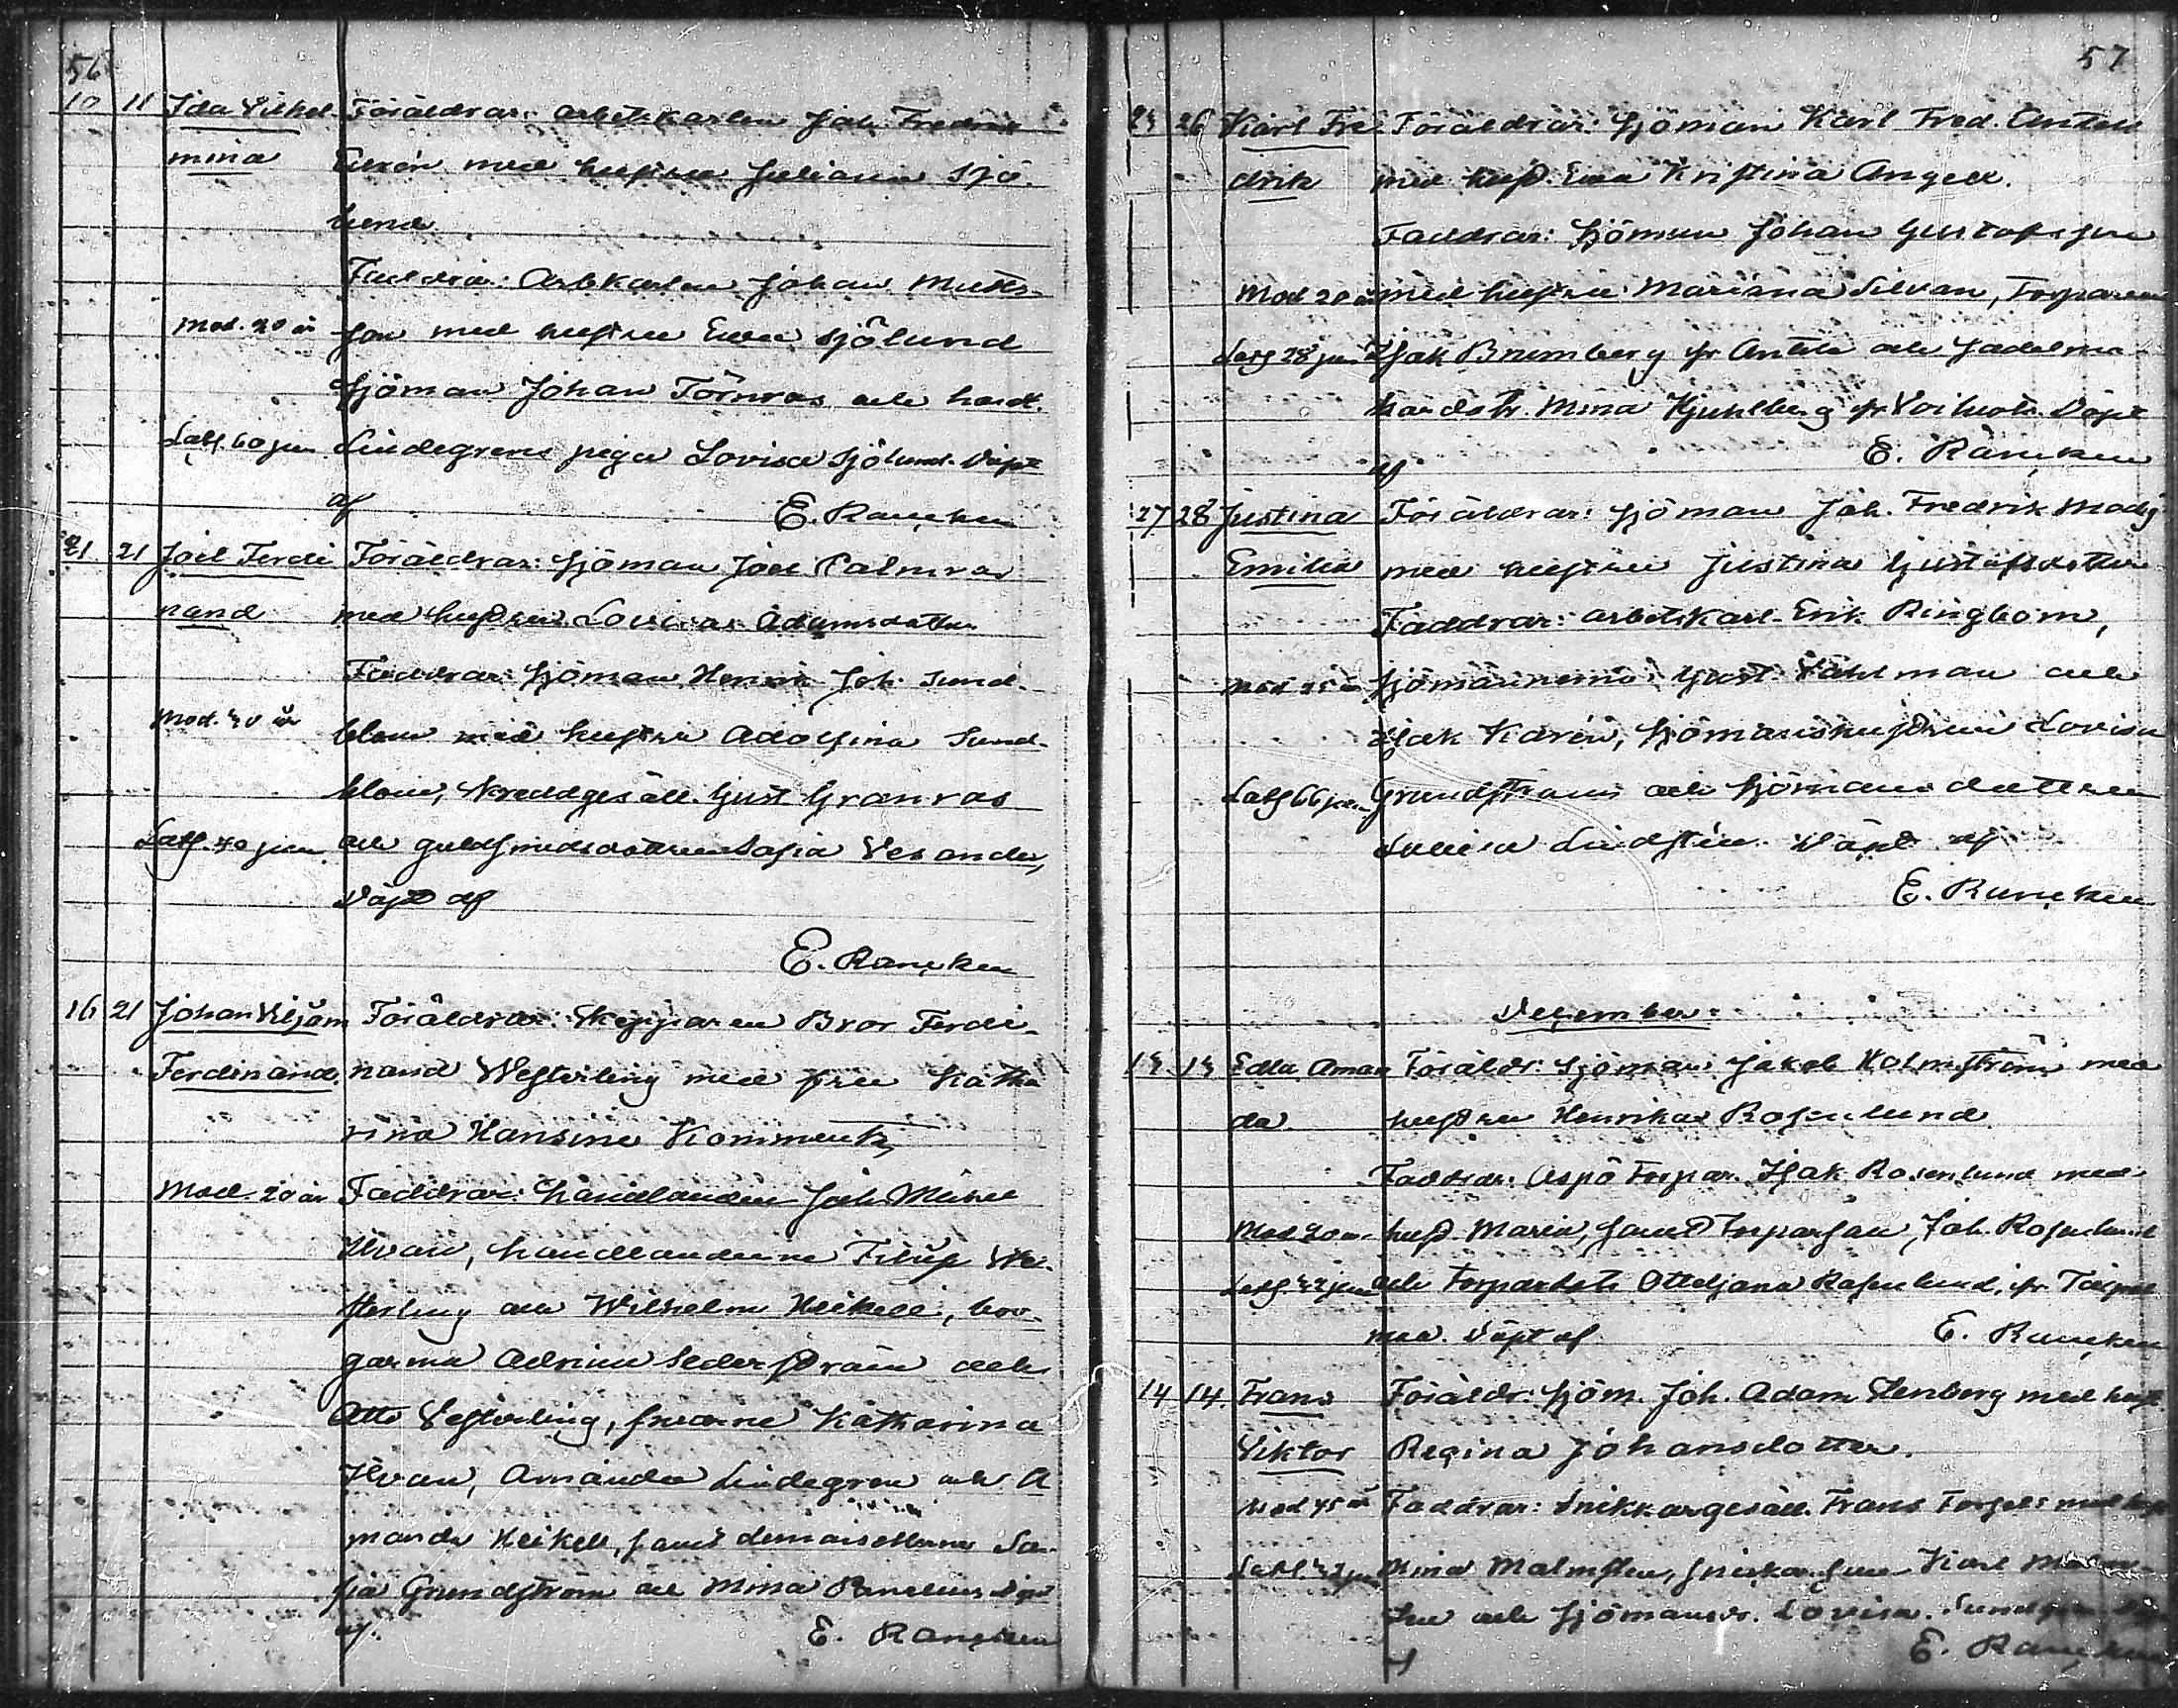 56
10 11 Ida Vilhel- Föräldrar: arbetskarlen Joh. Fredrik
mina med hustru Juliana Sjö-
lund
Faddrar: Arbkarlen Johan Matts-
Mod. 20 år son med hustru Eva Sjölund
Sjöman Johan Törnros och handl.
Lindegrens piga Lovisa Sjölund. Döpt
af E. Rancken
21 21 Joel Ferdi Föräldrar: Sjöman Joel Palmros
nand med hustru Lovisa Adamsdotter
Faddrar: Sjöman Henrik Joh. Sund-
Mod. 40 år blom med hustru Adolfina Sund-
blom, skreddgesäll. Gust Granros
och guldsmedsdottren Sofia Vesander,
Döpt af
E. Rancken
16 21 Johan Viljam Föräldrar: Skepparen Bror Ferdi-
Ferdinand. nand Westerling med fru Katha
rina Hansine
Mod. 20 år Faddrar: handlanden Joh.
handlandena Filip We-
sterling och Wilhelm Heikell, bor-
garna Sederström och
Otto Vesterling, fruarne Katharina
Amanda Lindegren och A
manda Heikell, samt demoisellerna So-
fia Grundström och Mina Döpt
af. E. Rancken
57
23 26 Karl Fre- Föräldrar: Sjöman Karl Fred. Antell
drik med hust. Eva Kristina Angell.
Faddrar: Sjöman Johan Gustafsson
Mod 20 år med hustru Mariana Silvan, Torparen
Isak Brumberg fr. Antila och Sadelma-
kardotr. Mina Kjuhlberg fr. Döpt
af E. Rancken
27 28 Justina Föräldrar: Sjöman Joh. Fredrik Modig
Emilia med hustru Justina Gustafsdotter
Faddrar: arbetskarl. Erik Ringbom,
Mod 25 år Sjömännerna: Gust. Vahlman och
Isak Karén, Sjömanshustrun Lovisa
Grundström och Sjömansdottren
Lovisa Lindstén. Döpt af
E. Rancken
December:
13 13 Edla Aman Föräldr: Sjöman Jakob Holmström med
da. hustru Henrika Rosenlund
Faddrar: Aspö Torpar. Isak Rosenlund med
hust. Maria, samt Torparson, Joh. Rosenlund
och Torpardotr Ottiljana Rosenlund, fr.
Döpt af E. Rancken
14 14. Frans Föräldr: Sjöm. Joh. Adam Stenberg med hust
Viktor Regina Johansdotter.
Mod 45 år Faddrar: Snikkargesäll. Frans med hust
Mina Malmsten, Karl
och Sjömansdr. Lovisa
E. Rancken